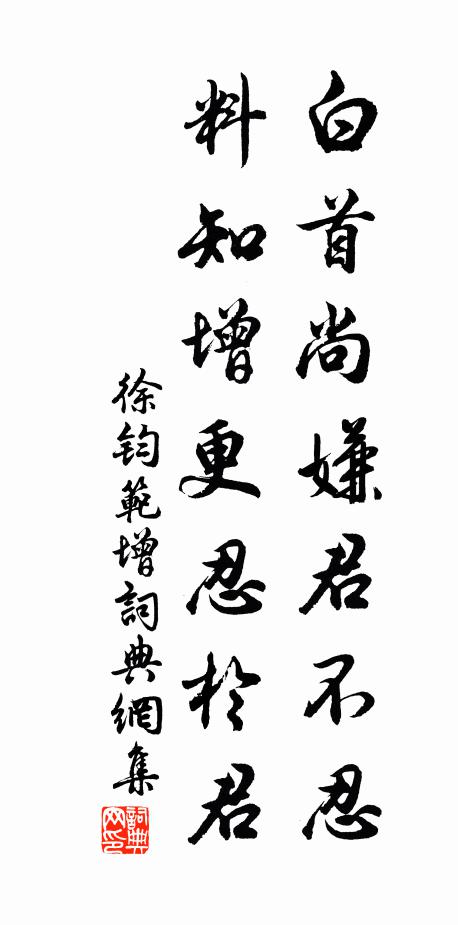 白首尚嫌君不忍
料知增更忍於君
徐鈞範增詞典網集
詞典
网印